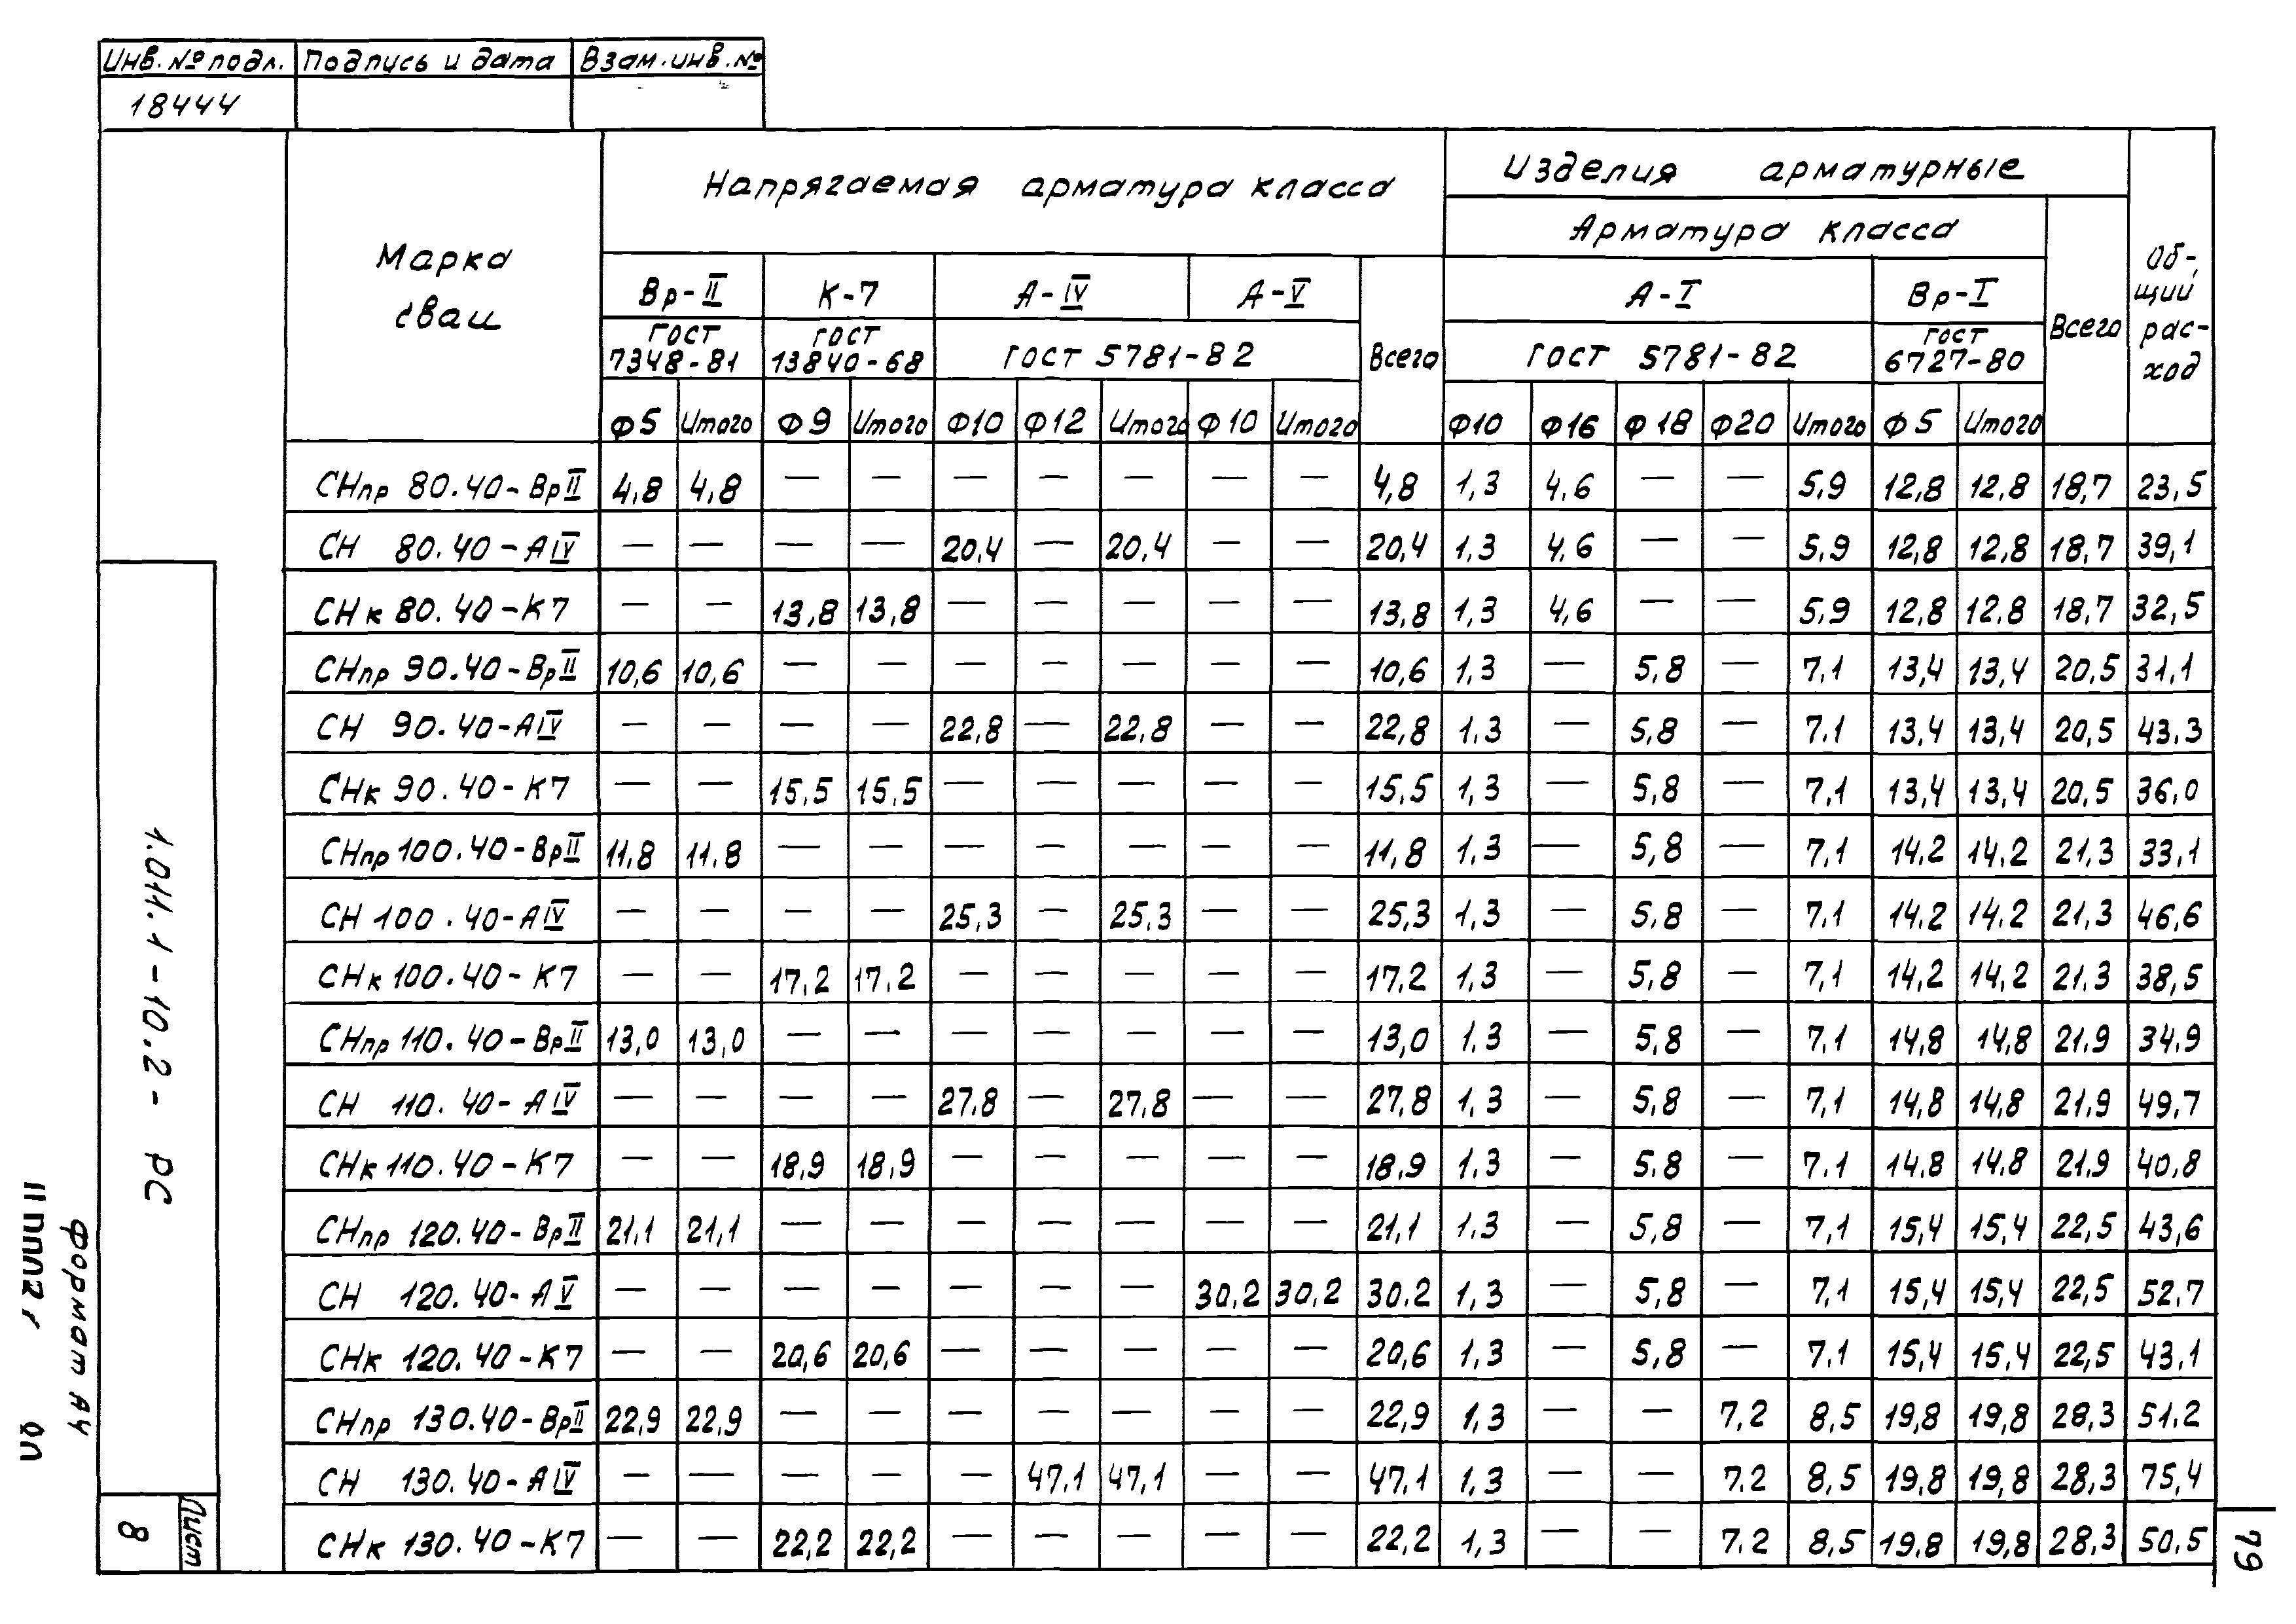 Инв. № подл. Подпись и дата Взам. инв. №
18444
Марка сваи
Напрягаемая арматура класса
Изделия арматурные
Арматура класса
Общий рас-ход
Вр-II К-7 А-IV А-V Всего А-I Вр-I Всего
ГОСТ 7348-81 ГОСТ 13840-68 ГОСТ 5781-82 ГОСТ 5781-82 ГОСТ 6727-80
Ф5 Итого Ф9 Итого Ф10 Ф12 Итого Ф10 Итого Ф10 Ф16 Ф18 Ф20 Итого Ф5 Итого
СНпр 80.40-ВрII 4,8 4,8 — — — — — — — 4,8 1,3 4,6 — — 5,9 12,8 12,8 18,7 23,5
СН 80.40-АIV — — — — 20,4 — 20,4 — — 20,4 1,3 4,6 — — 5,9 12,8 12,8 18,7 39,1
СНк 80.40-К7 — — 13,8 13,8 — — — — — 13,8 1,3 4,6 — — 5,9 12,8 12,8 18,7 32,5
СНпр 90.40-ВрII 10,6 10,6 — — — — — — — 10,6 1,3 — 5,8 — 7,1 13,4 13,4 20,5 31,1
СН 90.40-АIV — — — — 22,8 — 22,8 — — 22,8 1,3 — 5,8 — 7,1 13,4 13,4 20,5 43,3
СНк 90.40-К7 — — 15,5 15,5 — — — — — 15,5 1,3 — 5,8 — 7,1 13,4 13,4 20,5 36,0
СНпр 100.40-ВрII 11,8 11,8 — — — — — — — 11,8 1,3 — 5,8 — 7,1 14,2 14,2 21,3 33,1
СН 100.40-АIV — — — — 25,3 — 25,3 — — 25,3 1,3 — 5,8 — 7,1 14,2 14,2 21,3 46,6
СНк 100.40-К7 — — 17,2 17,2 — — — — — 17,2 1,3 — 5,8 — 7,1 14,2 14,2 21,3 38,5
СНпр 110.40-ВрII 13,0 13,0 — — — — — — — 13,0 1,3 — 5,8 — 7,1 14,8 14,8 21,9 34,9
СН 110.40-АIV — — — — 27,8 — 27,8 — — 27,8 1,3 — 5,8 — 7,1 14,8 14,8 21,9 49,7
СНк 110.40-К7 — — 18,9 18,9 — — — — — 18,9 1,3 — 5,8 — 7,1 14,8 14,8 21,9 40,8
СНпр 120.40-ВрII 21,1 21,1 — — — — — — — 21,1 1,3 — 5,8 — 7,1 15,4 15,4 22,5 43,6
СН 120.40-АV — — — — — — — 30,2 30,2 30,2 1,3 — 5,8 — 7,1 15,4 15,4 22,5 52,7
СНк 120.40-К7 — — 20,6 20,6 — — — — — 20,6 1,3 — 5,8 — 7,1 15,4 15,4 22,5 43,1
СНпр 130.40-ВрII 22,9 22,9 — — — — — — — 22,9 1,3 — — 7,2 8,5 19,8 19,8 28,3 51,2
СН 130.40-АIV — — — — — 47,1 47,1 — — 47,1 1,3 — — 7,2 8,5 19,8 19,8 28,3 75,4
СНк 130.40-К7 — — 22,2 22,2 — — — — — 22,2 1,3 — — 7,2 8,5 19,8 19,8 28,3 50,5
1.011.1-10.2- РС
Лист
8
формат А4
79